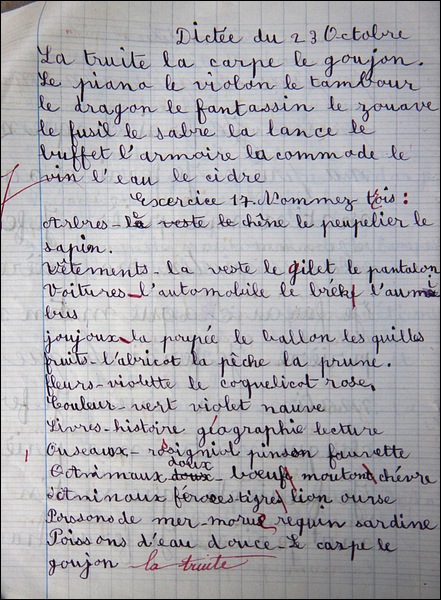 Dictée du 23 Octobre
La truite la carpe le goujon.
Le piano le violon le tambour
le dragon le fantassin le zouave
le fusil le sabre la lance le
buffet l'armoire la commode le
vin l'eau le cidre
Exercice 17. Nommez trois :
Arbres - le veste le chêne le peuplier le
sapin.
Vêtements - la veste le gilet le pantalon
Voitures - l'automobile le l'aumi
bus
joujoux - la poupée le ballon les quilles
fruits l'abricot la pêche la prune.
fleurs - violette le coquelicot rose,
Couleur - vert violet nauve
Livres - histoire géographie lecture
Ouseaux - rossigniol pinson fauvette
doux
Animaux doux - bœuf mouton chévre
Animaux féroces tigre lion ourse
Poissons de mer - morue requin sardine
Poissons d'eau douce - Le carpe le
goujon la truite